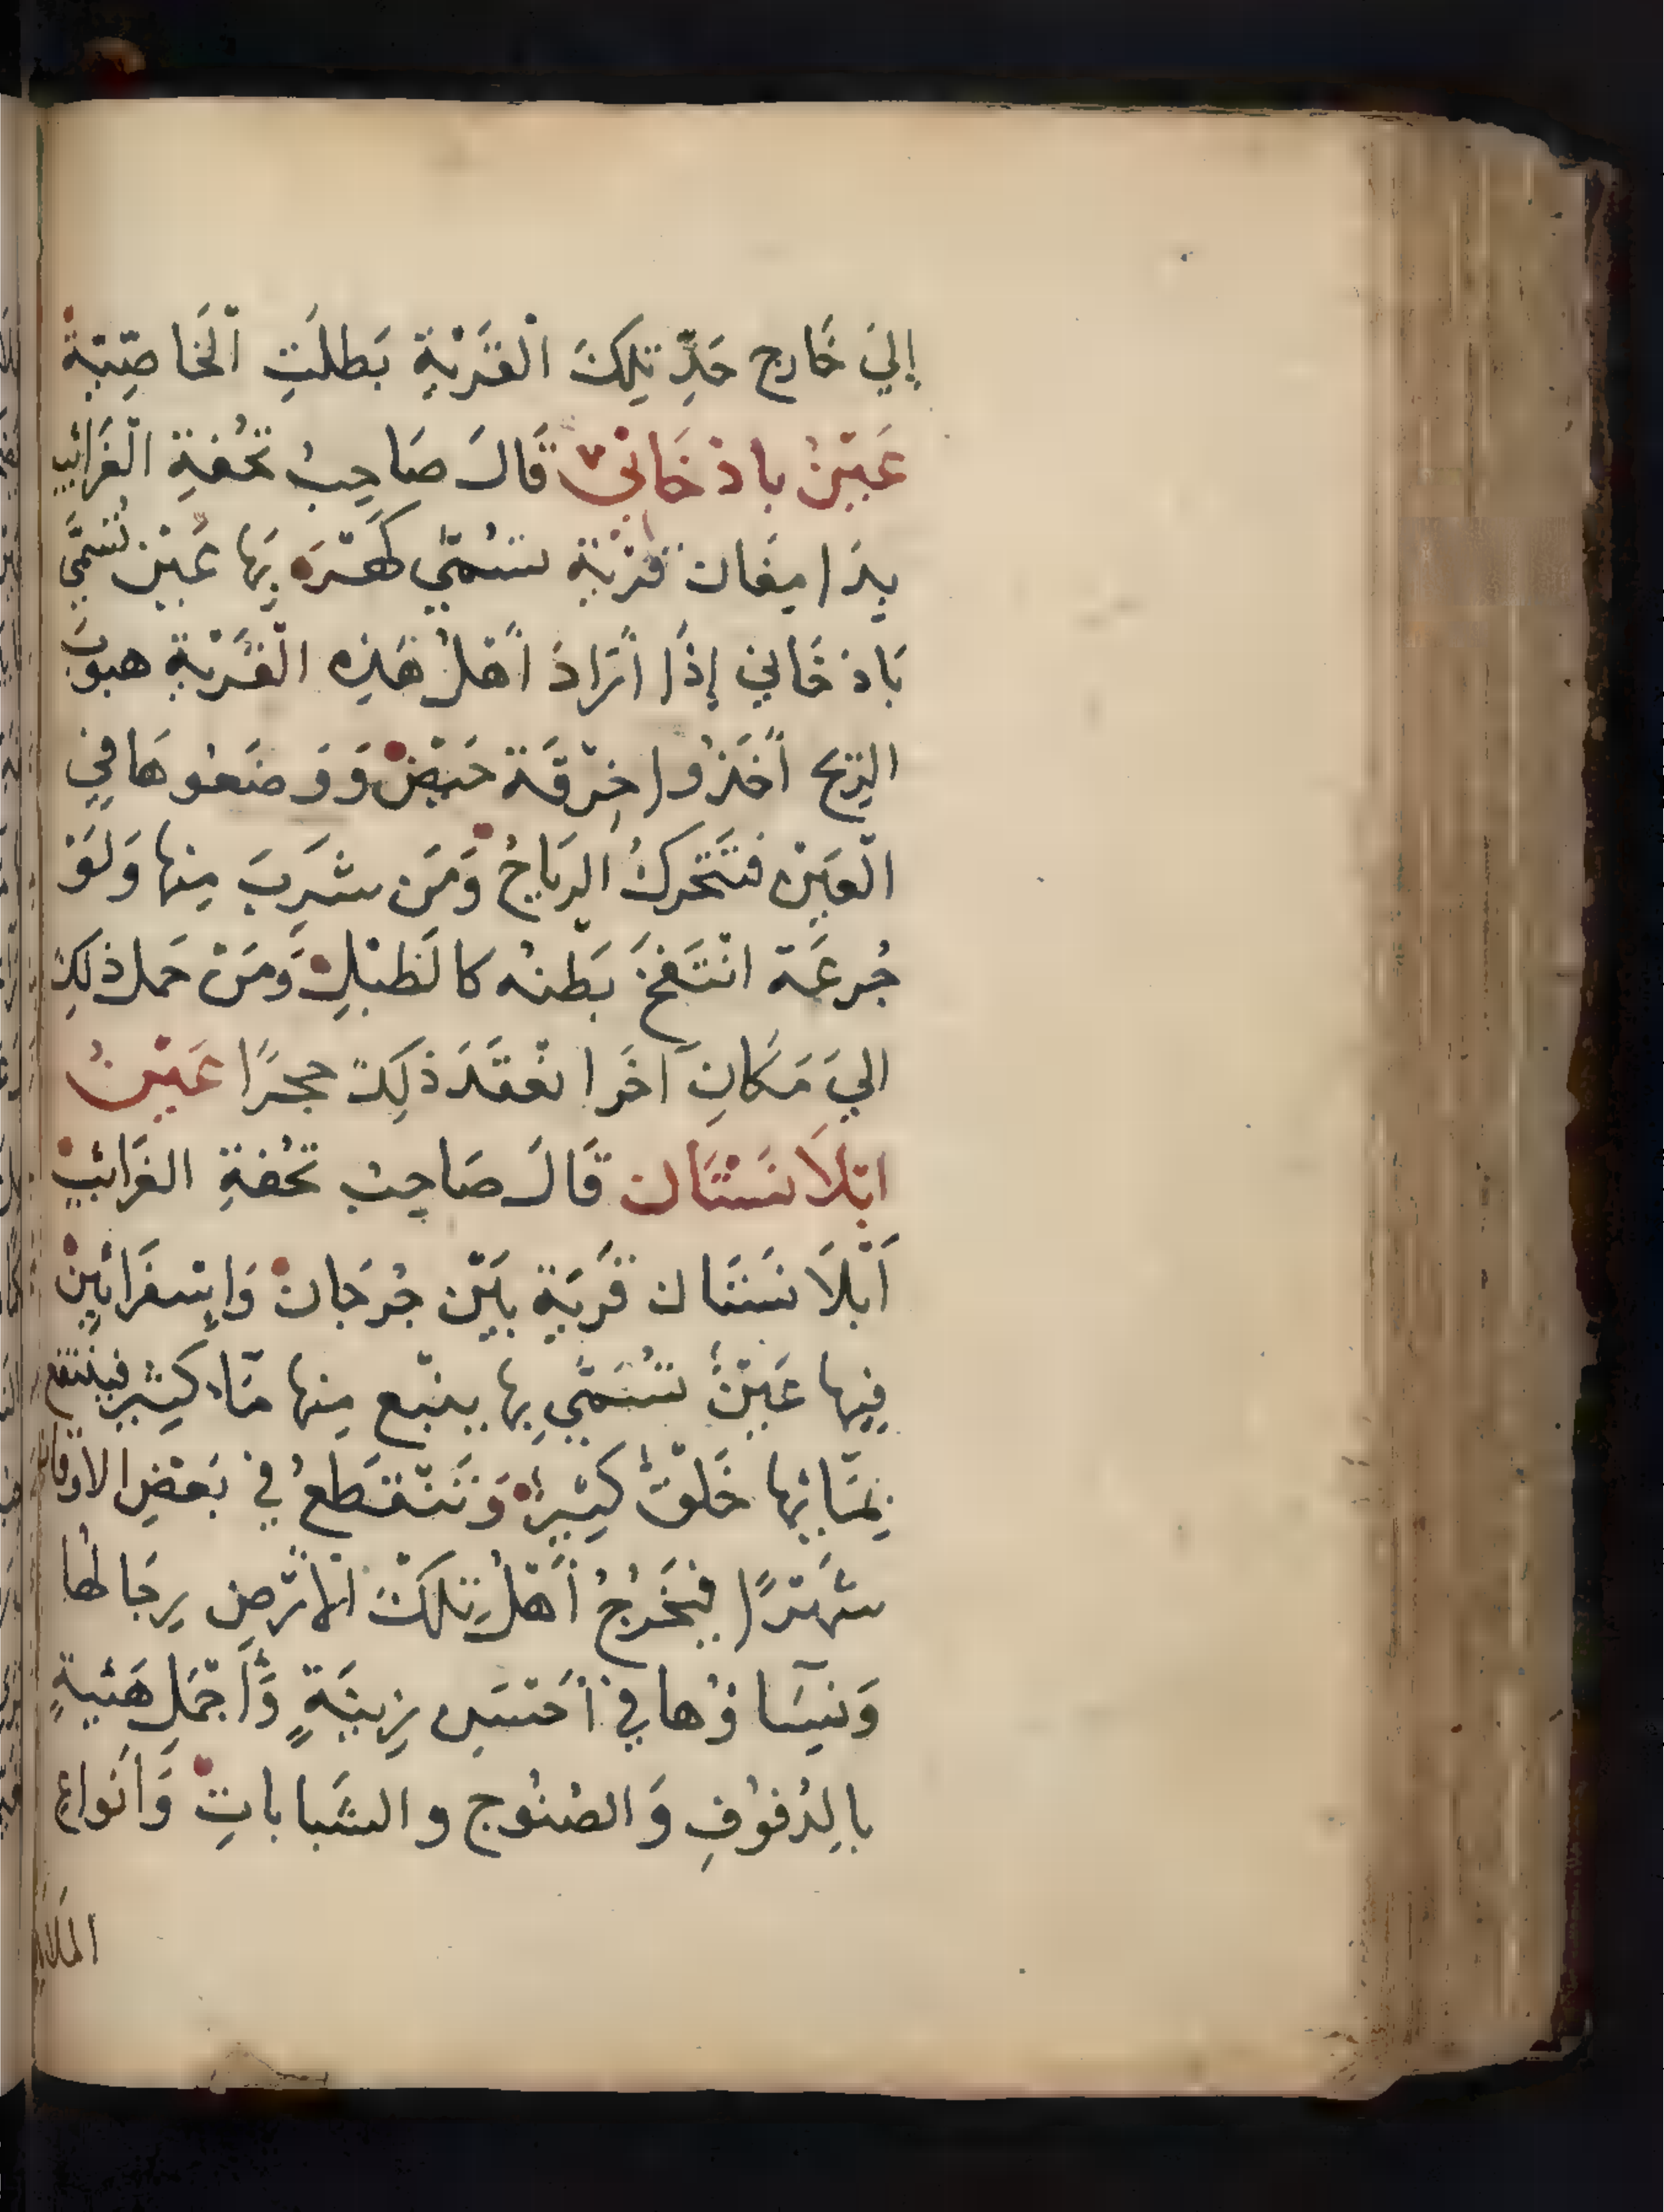 إِليَ خَارِجِ حَدِّ تِلكَ الْقَرْيَةِ بَطلَتِ الْخَاصِّيَةُ
عَيْنُ باذخَانِيْ قَالَ صَاحِبُ تُحْفةِ الْغَرائب
بِدَامِغَان قَرْيَة تسُمَّى كَهَرَ بِهَا عَيْن تُسَمَّي
بَاذخَانيِ إِذَا أَرَادَ أَهْلُ هَذِه الْقَرْيَةِ هبوبَ
الرِّيح أَخَذُوا خِرْقَة حَيْضٍ وَوَضَعُوهَا فيِ
الْعَيْن فتَتَحَرك الرِيَاحُ وَمَن شَرِبَ مِنها وَلَوْ
جُرعَة انْتَفَخَ بَطنُه كالَطبْلِ وَمَنْ حَمل ذلِكَ
اليَ مَكَانِ آخَر انْعَقَدَ ذَلِكَ حجرًا عَيْنُ
ابْلَانَسْتَان قَالَ صَاحِبُ تُحْفةِ الغَرائبْ
أَبْلَانَسَتَان قَرْيَة بَيْن جُرجَان وَإِسْفَرائِينْ
فِيها عَيْنٌ تُسَمَّي بِها ينْبع مِنها مَآء كثِير فيَنْتفع
بِمَائِها خَلْقٌ كَثِيْرٌ وَتَنْقَطعُ في بَعْضِ الاوقات
شَهْرًا فيَخْرُجُ أَهْلُ تِلكَ الارْض رِجَالُها
وَنِسَآؤُها فيِ أحْسَن زِينَةٍ وَأَجْمَلِ هَيْئةٍ
بالِدُفُوفِ وَالصُنُوج والشَبابَاتِ وَأَنوَاعِ
الملاهي